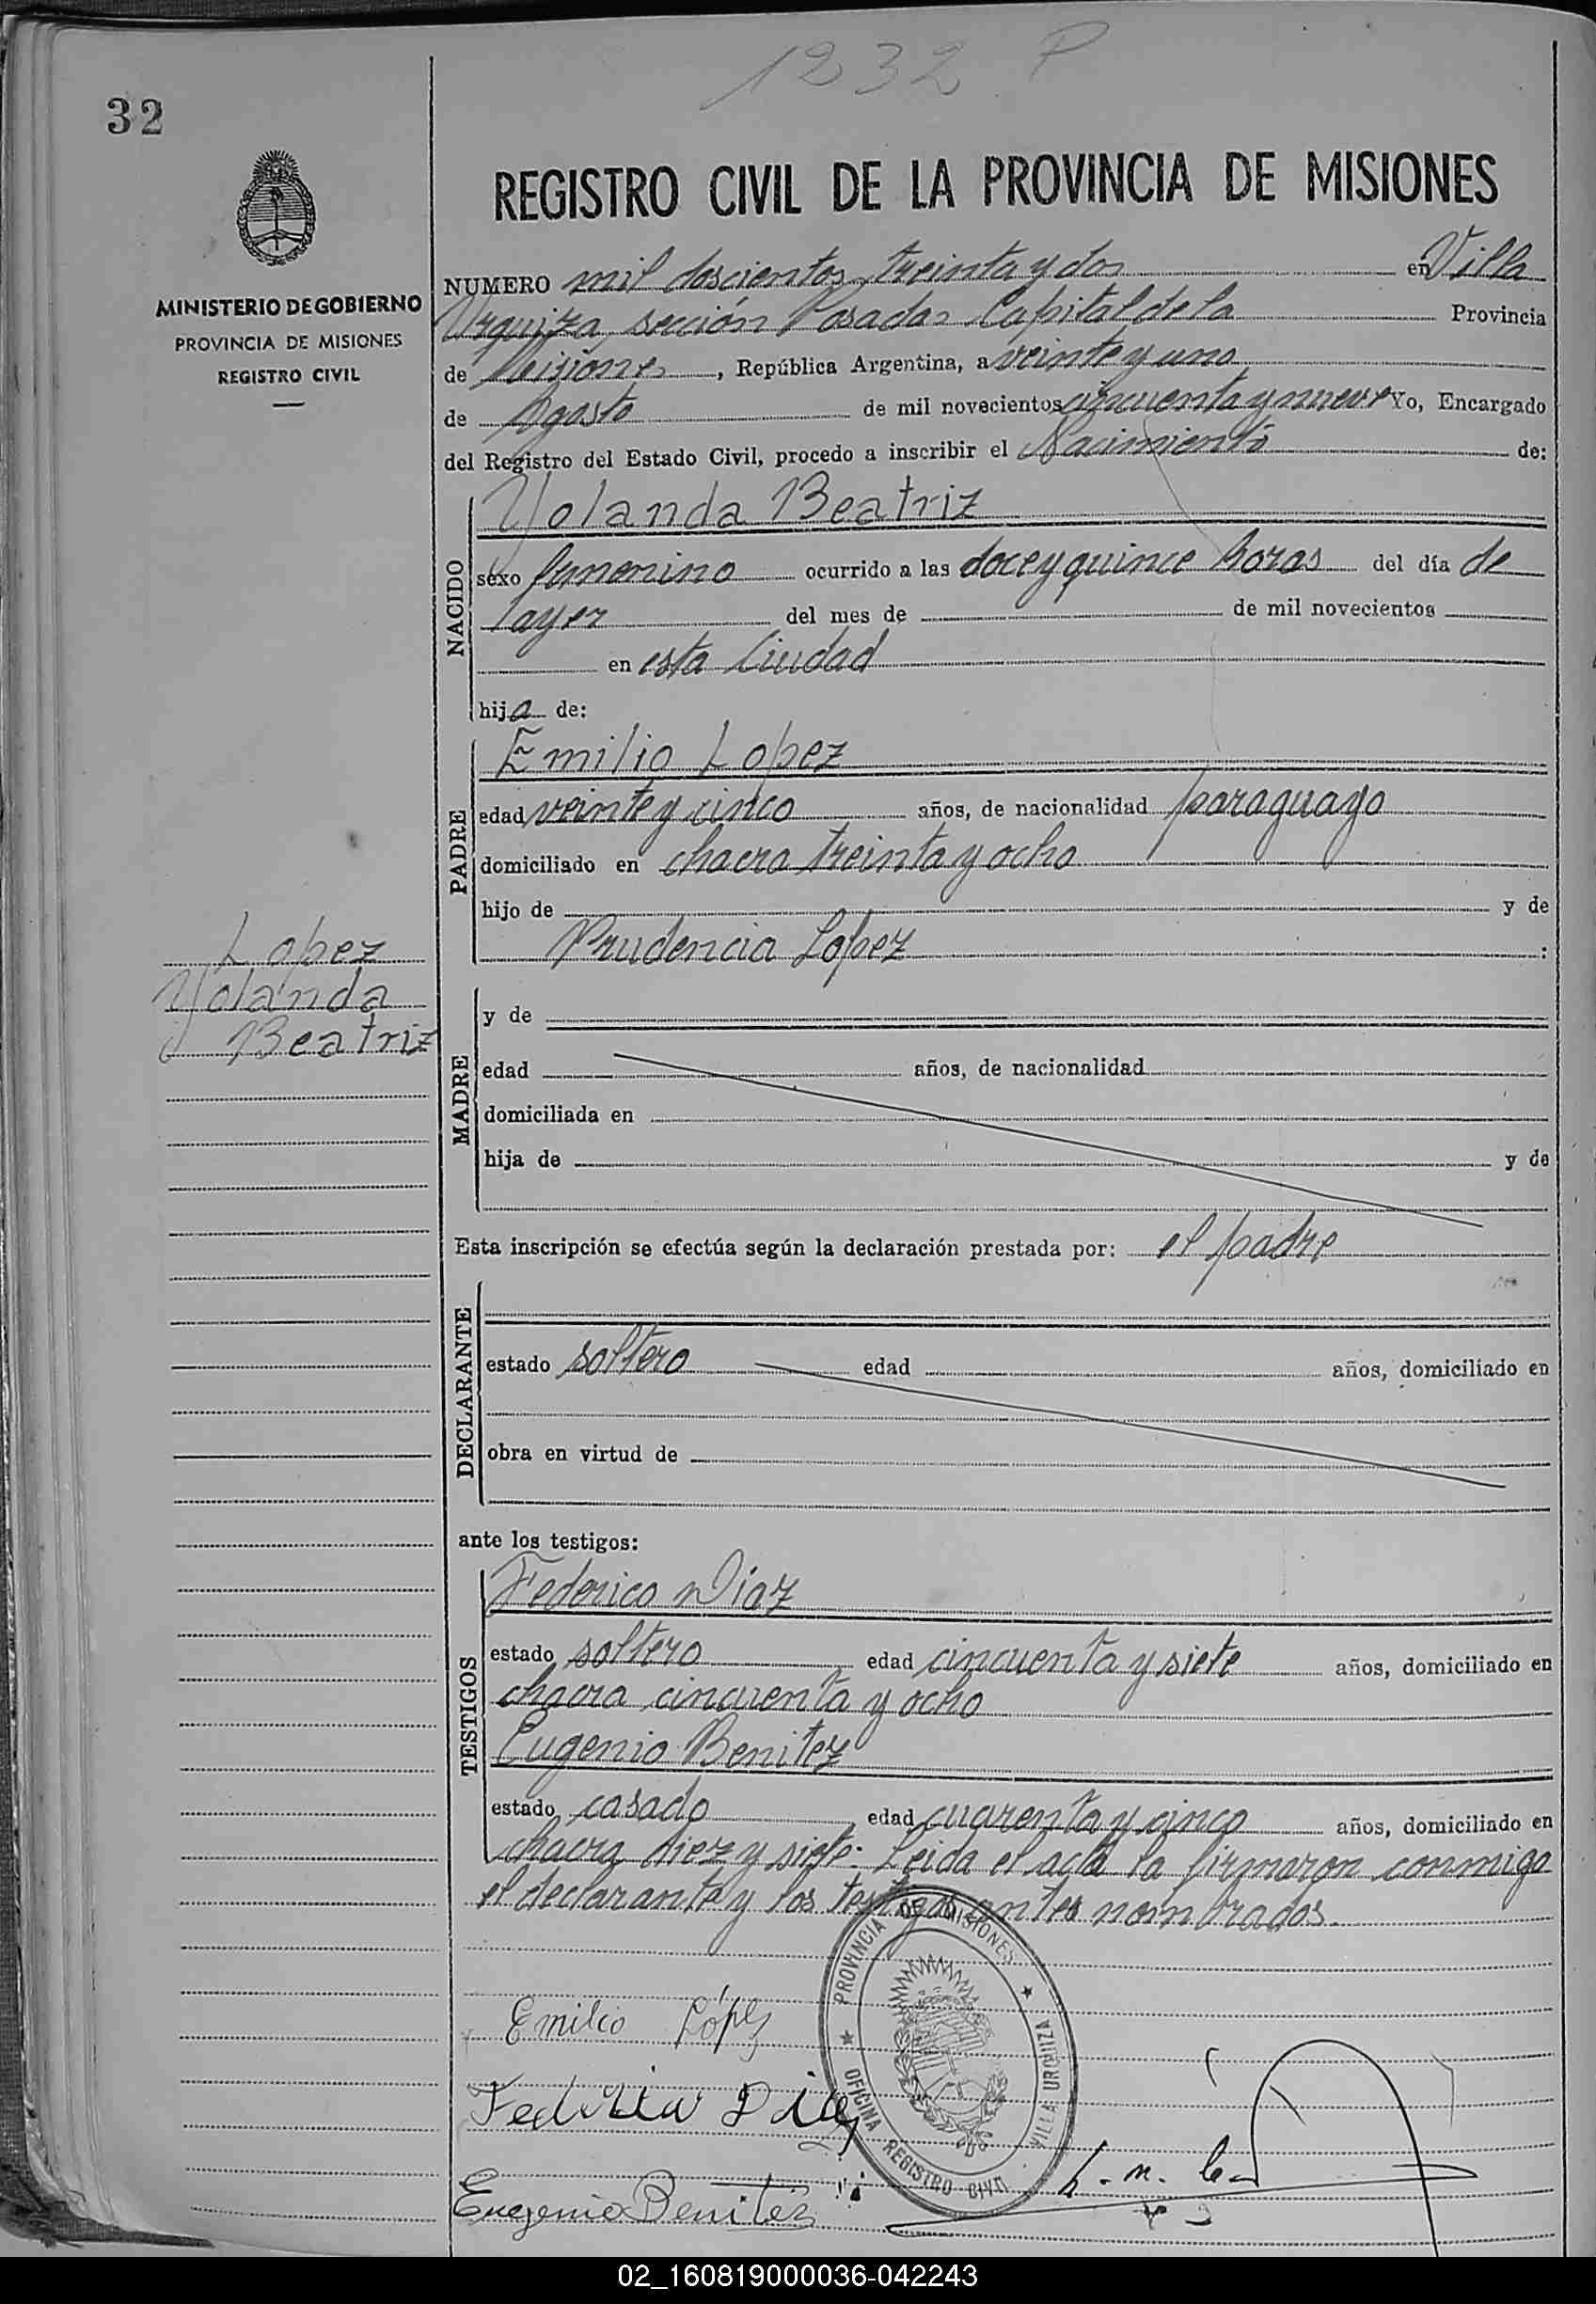 1232 P
32
MINISTERIO DE GOBIERNO
PROVINCIA DE MISIONES
REGISTRO CIVIL
REGISTRO CIVIL DE LA PROVINCIA DE MISIONES
NUMERO mil doscientos treinta y dos en Villa
Urquiza sección Posadas Capital de la Provincia
de Misiones, República Argentina, a veinte y uno
de Agosto de mil novecientos cincuenta y nueve Yo, Encargado
del Registro del Estado Civil, procedo a inscribir el Nacimiento de:
NACIDO
Yolanda Beatriz
sexo femenino ocurrido a las doce y quince horas del día de
ayer del mes de de mil novecientos
en esta Ciudad
hija de:
PADRE
Emilio Lopez
edad veinte y cinco años, de nacionalidad paraguayo
domiciliado en chacra treinta y ocho
hijo de y de
Prudencia Lopez :
Lopez
Yolanda
Beatriz
MADRE
y de
edad años, de nacionalidad
domiciliada en
hija de y de
Esta inscripción se efectúa según la declaración prestada por: el padre
DECLARANTE
estado soltero edad años, domiciliado en
obra en virtud de
ante los testigos:
TESTIGOS
Federico Diaz
estado soltero edad cincuenta y siete años, domiciliado en
chacra cincuenta y ocho
Eugenio Benitez
estado casado edad cuarenta y cinco años, domiciliado en
chacra diez y siete: Leida el acta la firmaron conmigo
el declarante y los testigos antes nombrados.
PROVINCIA DE MISIONES
VILLA URQUIZA
OFICINA REGISTRO CIVIL
Emilio López
Federico Diaz
Eugenio Benitez
02_160819000036-042243